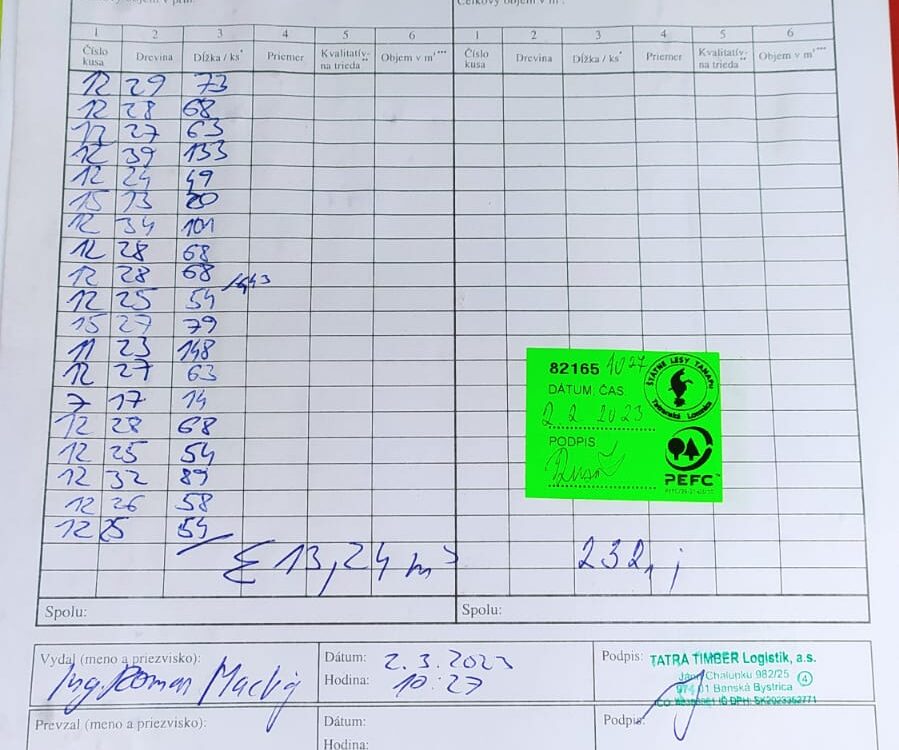 Celkový objem v m³:
1 2 3 4 5 6 1 2 3 4 5 6
Číslo kusa Drevina Dĺžka / ks* Priemer Kvalitatív- na trieda** Objem v m³*** Číslo kusa Drevina Dĺžka / ks* Priemer Kvalitatív- na trieda** Objem v m³***
12 29 73
12 28 68
12 27 63
12 39 133
12 24 49
15 13 20
12 34 101
12 28 68
12 28 68
12 25 54
15 27 79
11 23 148
12 27 63
7 17 14
12 28 68
12 25 54
12 32 89
12 26 58
12 25 54
Σ 13,24 m³
Spolu: Spolu:
82165 1027
DÁTUM, ČAS
2. 2. 2023
PODPIS
ŠTÁTNE LESY TANAPU
Tatranská Lomnica
PEFC™
Vydal (meno a priezvisko): Dátum: 2.3.2023 Podpis:
Ing. Roman Hodina: 10:27
TATRA TIMBER Logistik, a.s.
Jána Chalupku 982/25
974 01 Banská Bystrica
4
Prevzal (meno a priezvisko): Dátum: Podpis:
Hodina: